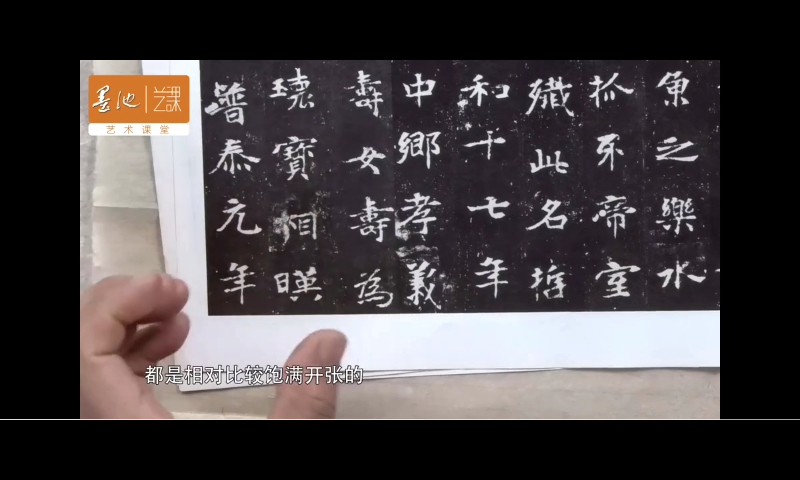 墨池 | 艺课
艺术课堂
魚之樂水
抓牙帝室
殱此名哲
和十七年
中鄉孝義
壽女壽為
瓌寶相暎
普泰元年
都是相对比较饱满开张的